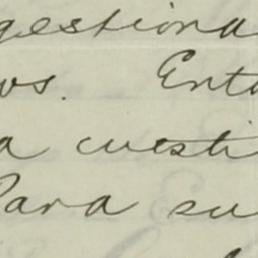 gestiona
os. Ent
a cuesti
Para su